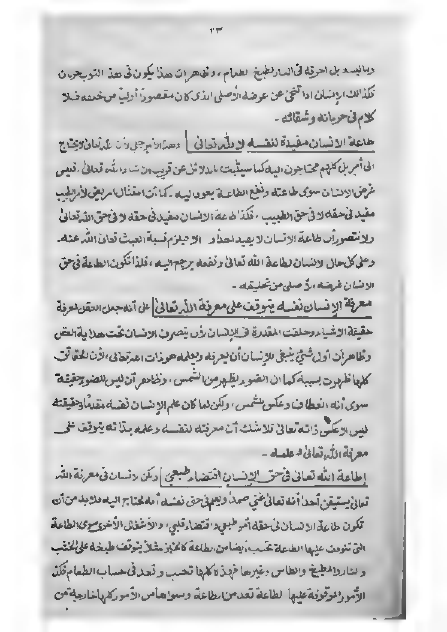 ٢٣
بل احرقه في النار لطبخ الطعام، وظاهر ان هذا يكون في هذا الثوب حرمان
فكذالك الإنسان اذا تنحى عن غرضه الأصلي الذي كان مقصوراً أوليا من خلقه فلا
كلام في حرمانه وشقائه -
طاعة الإنسان مفيدة لنفسه لا لله تعالى وهذا لأن الله تعالى لا يحتاج
الى أمر بل كلهم محتاجون اليه كما سيثبت بالدلائل عن قريب ان شاء الله تعالى، فليس
غرض الإنسان سوى طاعته ونفع الطاعة يعود ليه - كما أن امتثال المريض لأمر الطبيب
مفيد في حقه لا في حق الطبيب، فكذا طاعة الإنسان مفيد في حقه لا في حق الله تعالى
ولا يتصور أن طاعة الإنسان لا يفيد لأحد والا فيلزم نسبة العبث تعالى الله عنه -
وعلى كل حال لإنسان لطاعة الله تعالى ونفعه يرجع اليه، فلذا تكون الطاعة في حق
الإنسان غرضه الأصلي من تخليقه -
معرفة الإنسان نفسه يتوقف على معرفة الله تعالى على أنه جعل العقل لمعرفة
حقيقة الأشياء وخلقت المقدرة في الإنسان لأن يتصرف الإنسان تحت هداية العقل
وظاهر ان أول شئ ينبغي للإنسان أن يعرفه ويعلمه هو ذات الله تعالى، لأن الحقائق
كلها ظهرت بسببه كما ان الضوء يظهر من الشمس، وظاهر أن ليس للضوء حقيقة
سوى أنه انعطاف وعكس للشمس، ولكن لما كان علم الإنسان نفسه مقدما وحقيقته
ليس الا عكس ذاته تعالى فلا شك أن معرفته لنفسه وعلمه بذاته يتوقف على
معرفة الله تعالى وعلمه -
إطاعة الله تعالى في حق الإنسان اقتضاء طبعي ولكن لإنسان في معرفة الله
تعالى يستيقن أحداً أنه تعالى غني صمد ويعلم في حق نفسه أنه محتاج اليه فلا بد من أن
تكون طاعة الإنسان في حقه أمر طبعي واقتضاء قلبي، والأشغال الأخرى سوى الطاعة
التي تتوقف عليها الطاعة تحسب أيضا من الطاعة كالخبز مثلا يتوقف طبخه على الخشب
والنار والمطبخ والطاس وغيرها فهذه كلها تحسب وتعد في حساب الطعام فكذا
الأمور الموقوفة عليها الطاعة تعد من الطاعة وسواها من الأمور كلها خارجة من